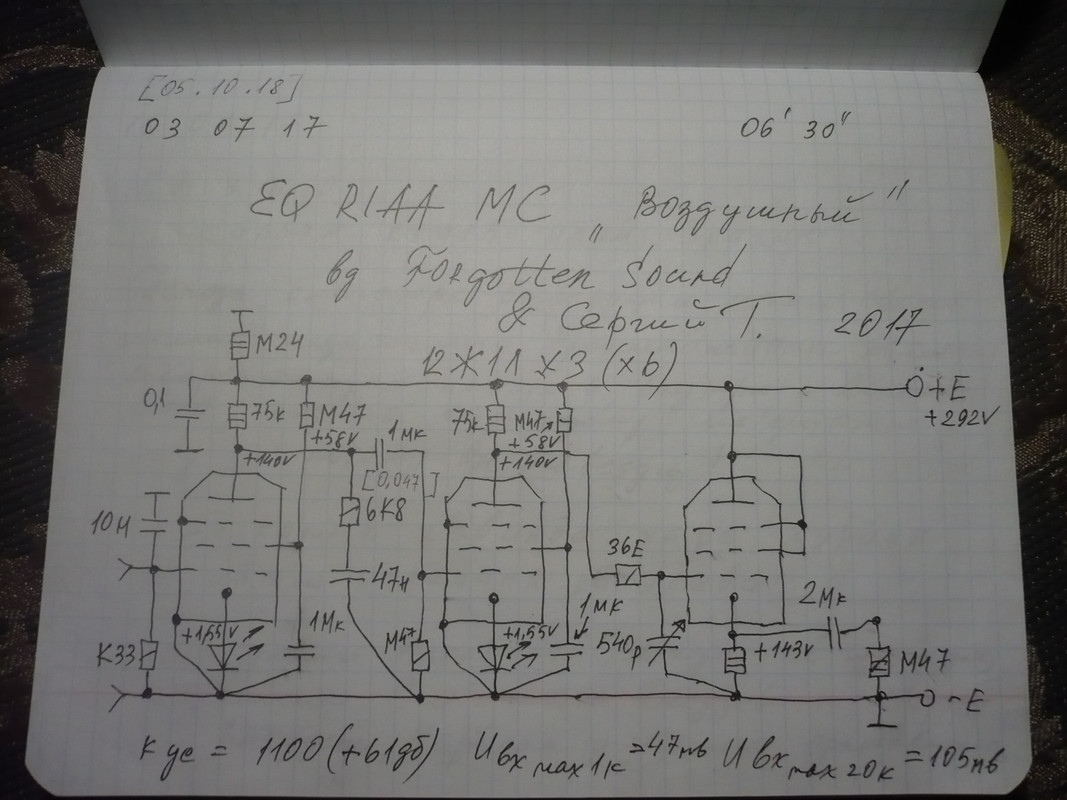 [05.10.18]
03 07 17
06' 30"
EQ RIAA MC "Воздушный"
by Forgotten Sound
& Сергий Т. 2017
12Ж1Л х3 (x6)
M24
0,1
75к
M47
+58v
+140v
1мк
[0,047]
75к
M47
+58v
+140v
+E
+292v
10н
6K8
47н
36E
K33
+1,55v
1мк
M47
+1,55v
1мк
540p
2мк
+143v
M47
-E
Кус = 1100 (+61дб) Uвх max 1к = 47мв Uвх max 20к = 105мв